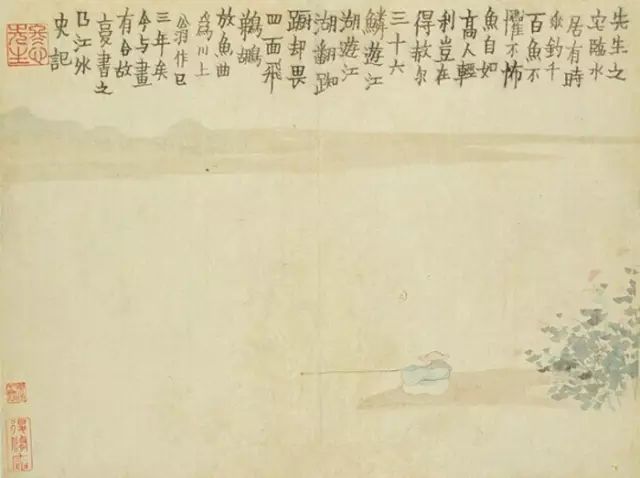 先生之
宅臨水
居有時
垂釣千
百魚不
懼不怖
魚自如
高人輕
利豈在
得赦尔
三十六
鱗遊江
湖遊江
湖翻踟
蹰却畏
四面飛
鵜鶘
放魚曲
爲川上
翁作已
三年矣
今与畫
有合故
書之
江外
史記
冬心先生